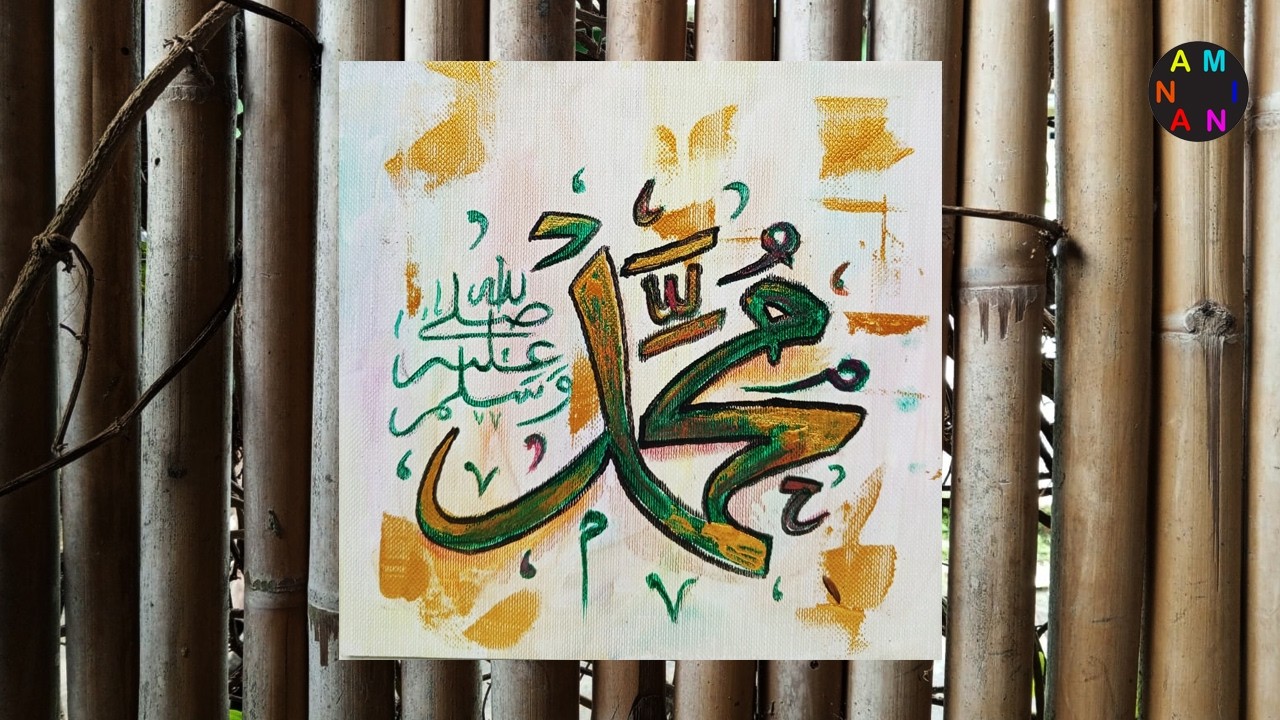 مُحَمَّد
صلى الله
عليه
وسلم
AMINAN